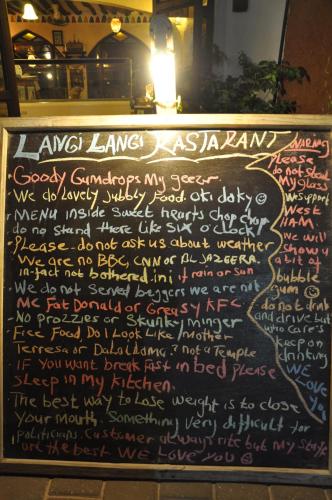 LANGI LANGI RASTARANT
Goody Gumdrops My geezer
We do Lovely Jubbly Food. oki doky
MENU inside Sweet hearts chop chop
do no stand there like SIX o'clock
Please. do not ask us about weather
We are no BBC, CNN or AL JAZEERA.
in-fact not bothered.ini if rain or sun
We do not Served beggers we are not
Mc Fat Donald or Greasy KFC
No prozzies or Skunky minger
Free Food, Do I Look Like / Mother
Terresa or Dalai Llama? not a Temple
IF YOU want break fast in bed Please
sleep in My kitchen.
The best way to Lose weight is to close
your Mouth. Something very difficult for
politicians. Customer always rite but My Staff
are the best WE LOVE YOU
WARNING
Please
do not steal
My glass
We support
West
HAM.
We will
Show you
a bit of
bubble
gum
do not drink
and drive but
who care's
keep on
drinking
WE
LOVE
YOU